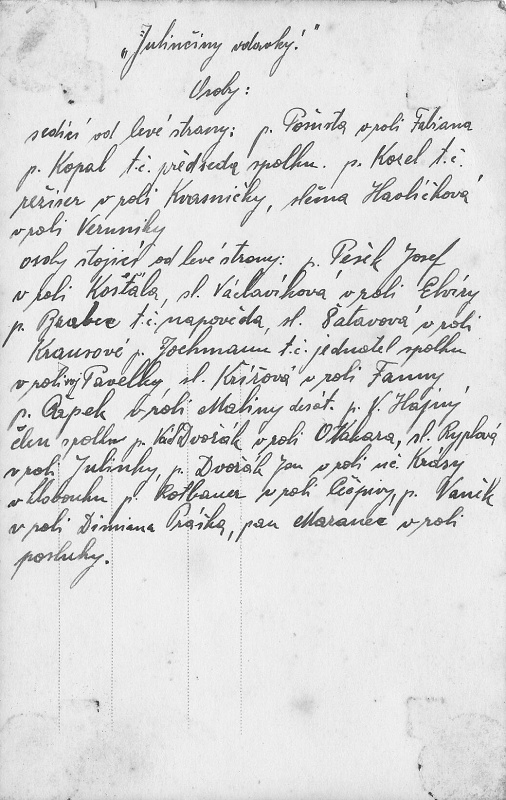 „Julinčiny vdavky!"
Osoby:
sedící od levé strany: p. Pošusta v roli Fabiana
p. Kopal t.č. předseda spolku. p. Kozel t.č.
režiser v roli Kvasničky, slečna Havlíčková
v roli Veruniky
osoby stojící od levé strany: p. Pešek Josef
v roli Košťála, sl. Václavíková v roli Elvíry
p. Brabec t.č. napověda, sl. Šatavová v roli
Krausové p. Jochmann t.č. jednatel spolku
v roli Pavelky sl. Křížová v roli Fanny
p. Čapek v roli Maliny p. V. Hajný
člen spolku p. Dvořák v roli Otakara, sl. Ryplová
v roli Julinky, p. Dvořák Jan v roli uč. Krásy
v klobouku p. Rotbauer v roli Čečpivy, p. Vaněk
v roli Dimiana Práška, pan Maranec v roli
posluhy.